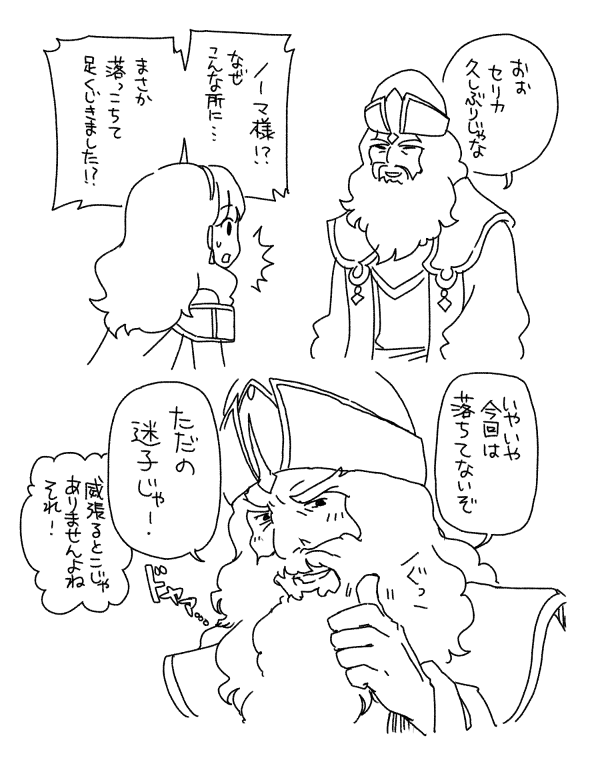 おお
セリカ
久しぶりじゃな
ノーマ様!?
なぜ
こんな所に…
まさか
落っこちて
足くじきました!?
いやいや
今回は
落ちてないぞ
ぐっ
ただの
迷子じゃー!
威張るとこじゃ
ありませんよね
それ!